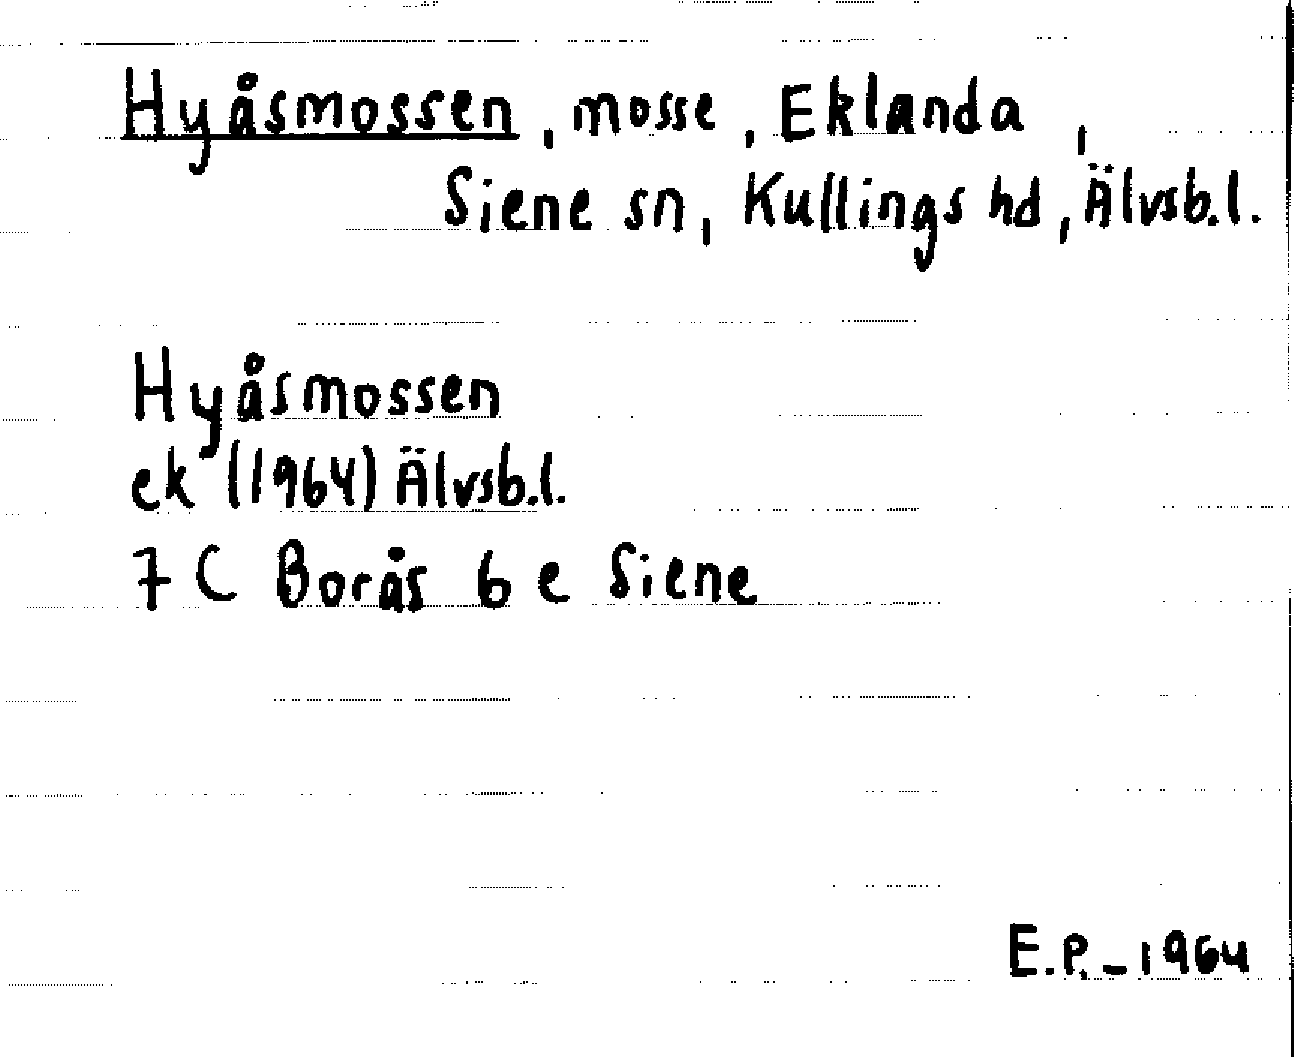 Hyåsmossen, mosse, Eklanda,
Siene sn, Kullings hd, Älvsb.l.
Hyåsmossen
ek (1964) Älvsb.l.
7 C Borås 6 e Siene
E.P. - 1964